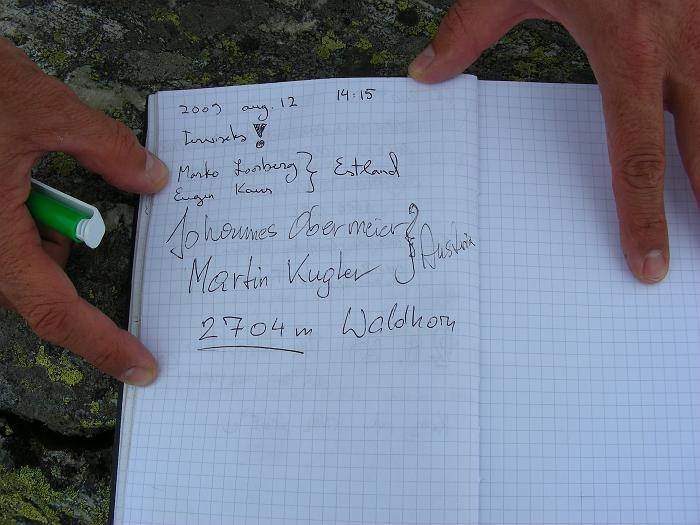 2009 aug. 12 14:15
Terviseks!
Marko Loorberg } Estland
Eugen Kaur
Johannes Obermeier } Austria
Martin Kugler
2704 m Waldhorn